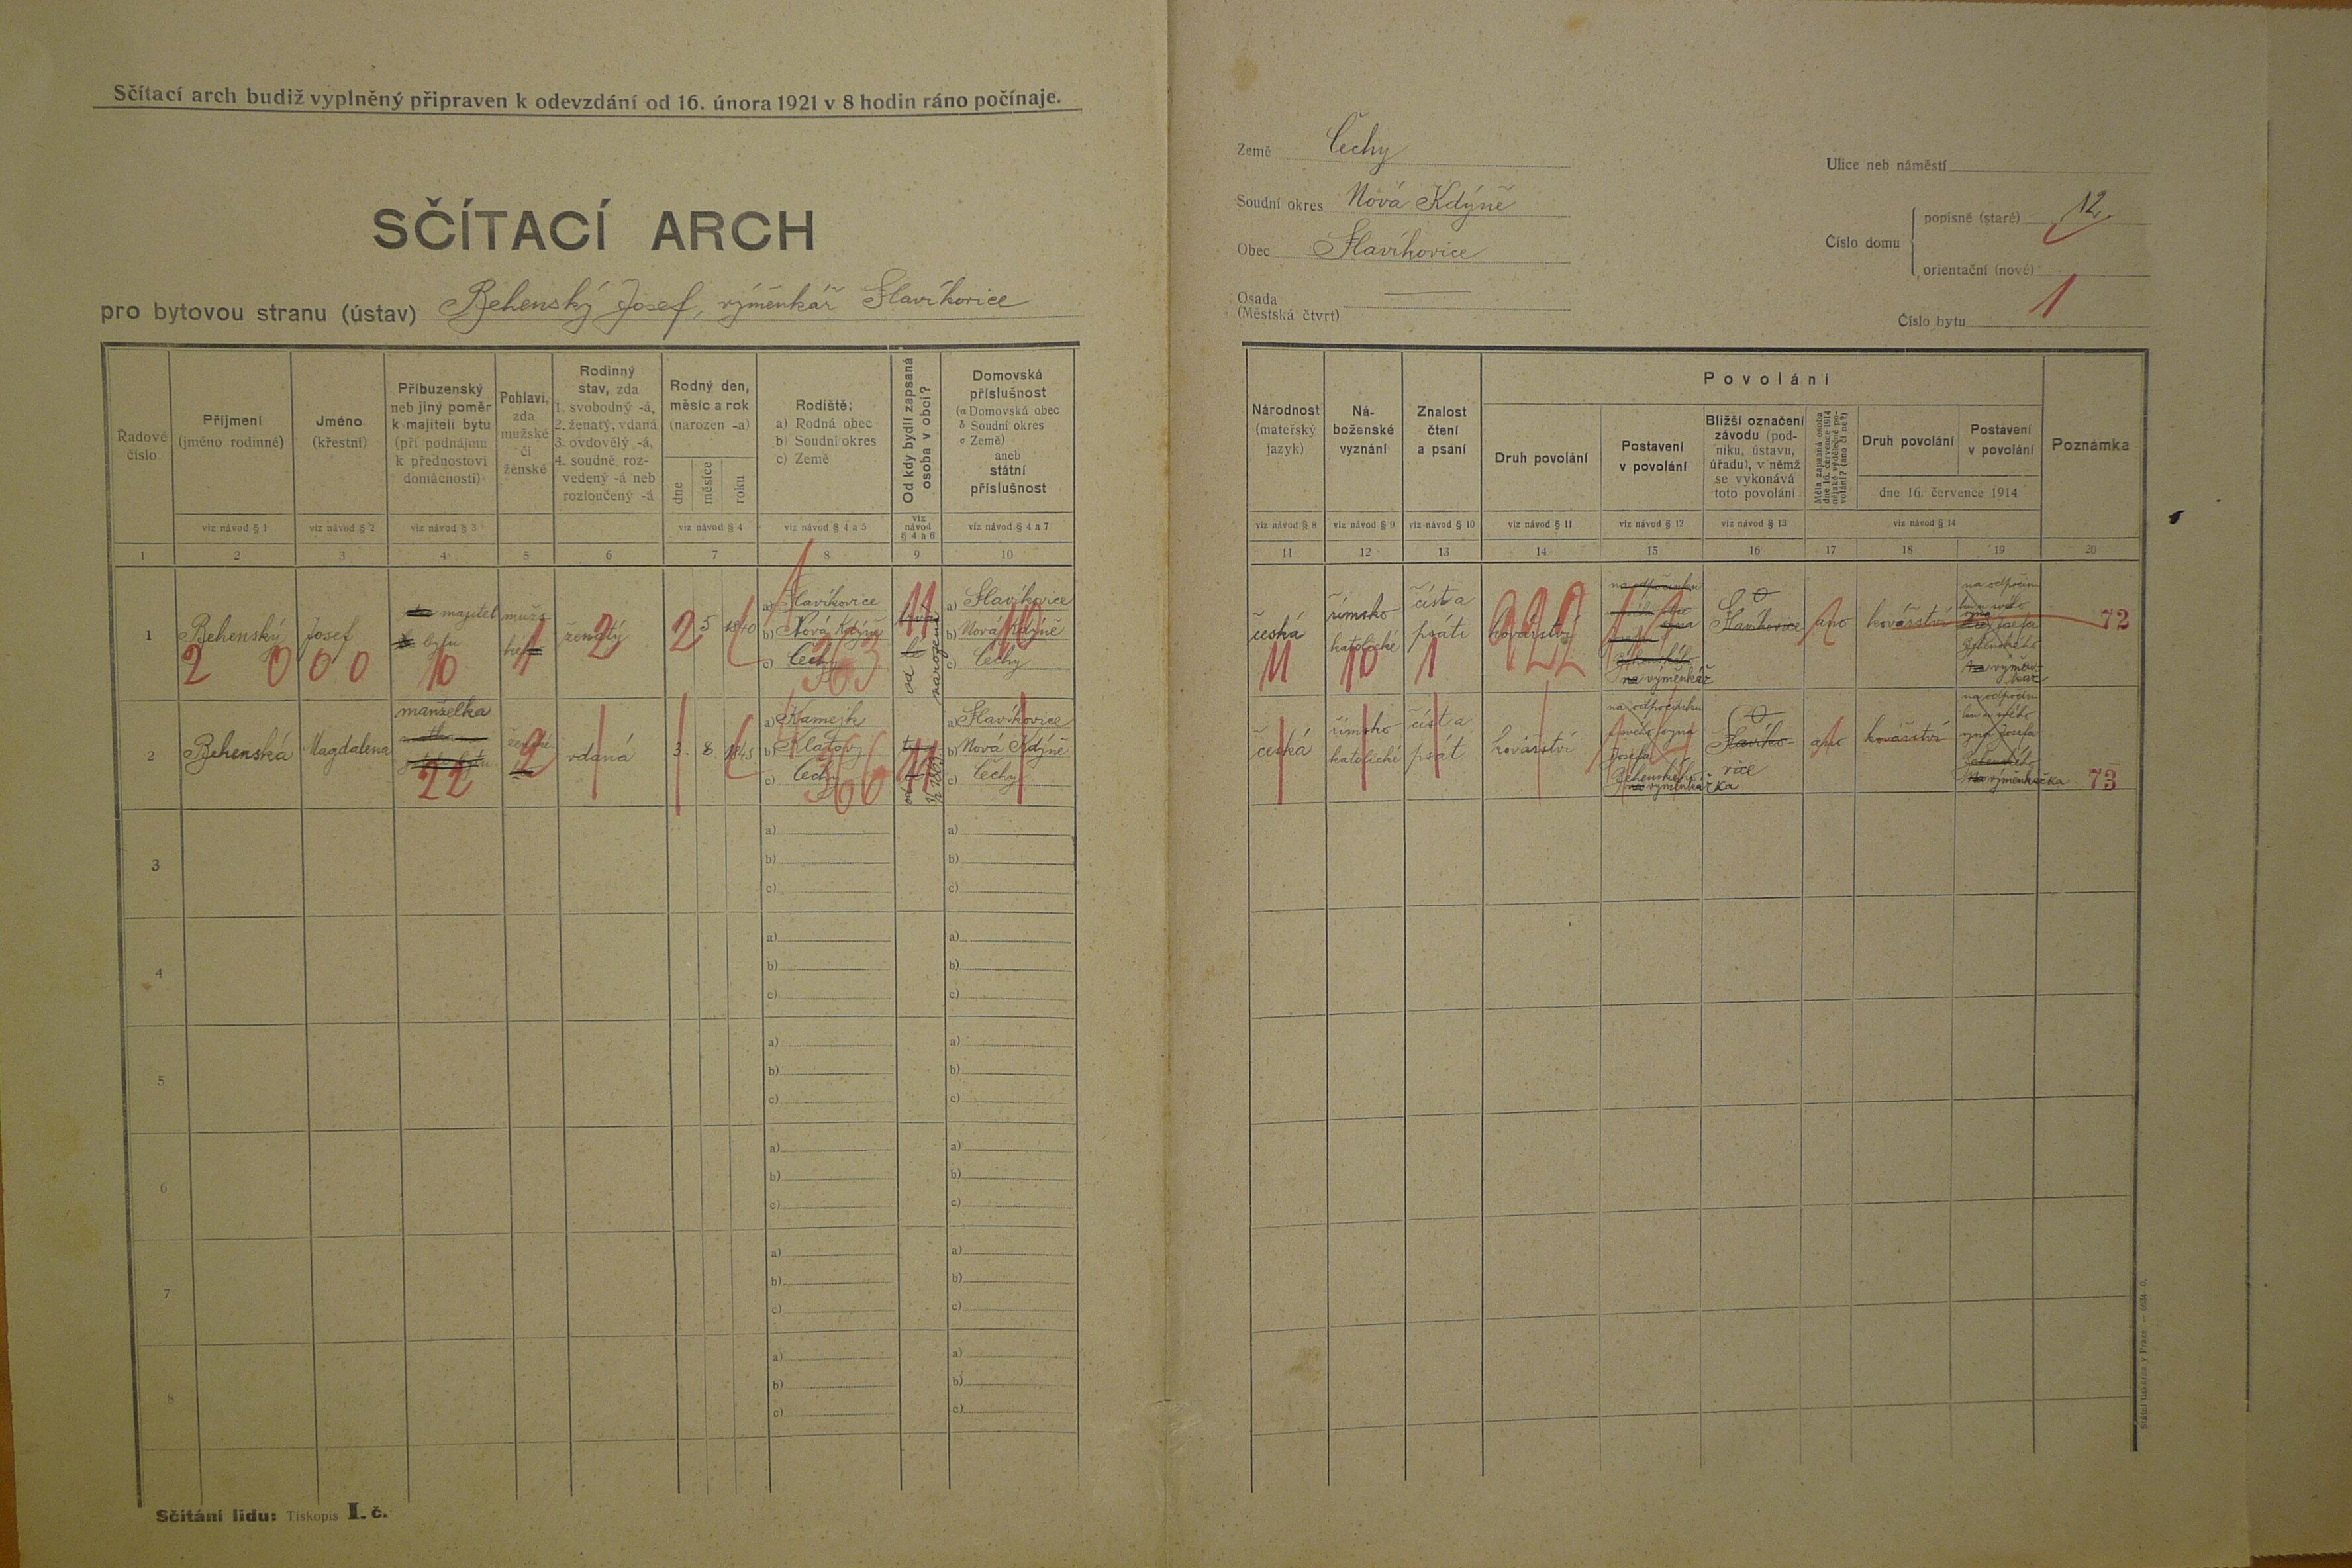 Sčítací arch budiž vyplněný připraven k odevzdání od 16. února 1921 v 8 hodin ráno počínaje.
SČÍTACÍ ARCH
pro bytovou stranu (ústav) Behenský Josef, výměnkář Slavíkovice
Země Čechy
Soudní okres Nová Kdýně
Obec Slavíkovice
Osada
(Městská čtvrt)
Ulice neb náměstí
Číslo domu
popisné (staré) 12.
orientační (nové)
Číslo bytu 1
Řadové
číslo
Příjmení
(jméno rodinné)
viz návod § 1
Jméno
(křestní)
viz návod § 2
Příbuzenský
neb jiný poměr
k majiteli bytu
(při podnájmu
k přednostovi
domácnosti)
viz návod § 3
Pohlaví,
zda
mužské
či
ženské
Rodinný
stav, zda
1. svobodný -á,
2. ženatý, vdaná
3. ovdovělý -á,
4. soudně roz-
vedený -á neb
rozloučený -á
Rodný den,
měsíc a rok
(narozen -a)
dne
měsíce
roku
viz návod § 4
Rodiště:
a) Rodná obec
b) Soudní okres
c) Země
viz návod § 4 a 5
Od kdy bydlí zapsaná
osoba v obci?
viz
návod
§ 4 a 6
Domovská
příslušnost
(a Domovská obec
b Soudní okres
c Země)
aneb
státní
příslušnost
viz návod § 4 a 7
Národnost
(mateřský
jazyk)
viz návod § 8
Ná-
boženské
vyznání
viz návod § 9
Znalost
čtení
a psaní
viz návod § 10
Povolání
Druh povolání
viz návod § 11
Postavení
v povolání
viz návod § 12
Bližší označení
závodu (pod-
niku, ústavu,
úřadu), v němž
se vykonává
toto povolání
viz návod § 13
Měla zapsaná osoba
dne 16. července 1914
nějaké výdělečné po-
volání? (ano či ne?)
Druh povolání
Postavení
v povolání
dne 16. července 1914
viz návod § 14
Poznámka
1 2 3 4 5 6 7 8 9 10
11 12 13 14 15 16 17 18 19 20
1 Behenský Josef
majitel
bytu
ženatý
2 5 1840
a) Slavíkovice
b) Nová Kdýně
c) Čechy
od narození
a) Slavíkovice
b) Nová Kdýně
c) Čechy
česká
římsko
katolické
číst a
psáti
kovářství
výměnkář
Slavíkovice
ano
kovářství
72
2 0 0 0 10 1 2
363
11 10
11 10 1
2 Behenská Magdalena
manželka
vdaná
3. 8. 1845
a) Kamejk
b) Klatovy
c) Čechy
a) Slavíkovice
b) Nová Kdýně
c) Čechy
česká
římsko
katolické
číst a
psát
kovářství
na odpočinku
syna
Josefa
výměnkářka
Slavíko-
vice
ano
kovářství
výměnkářka
73
22 2
366
11
3
a)
b)
c)
a)
b)
c)
4
a)
b)
c)
a)
b)
c)
5
a)
b)
c)
a)
b)
c)
6
a)
b)
c)
a)
b)
c)
7
a)
b)
c)
a)
b)
c)
8
a)
b)
c)
a)
b)
c)
Sčítání lidu: Tiskopis I. č.
Státní tiskárna v Praze